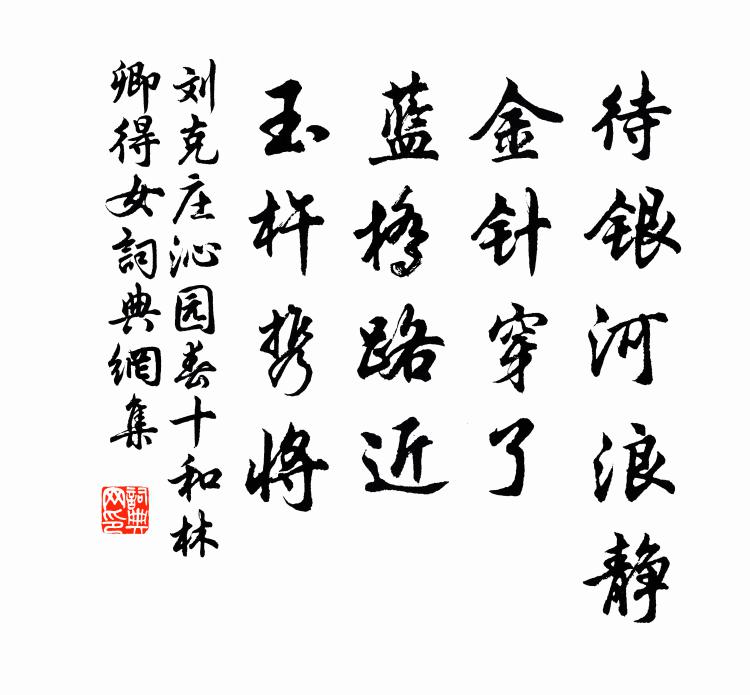 待银河浪静
金针穿了
蓝橋路近
玉杵携将
刘克庄沁园春十和林
卿得女詞典網集
詞典网印